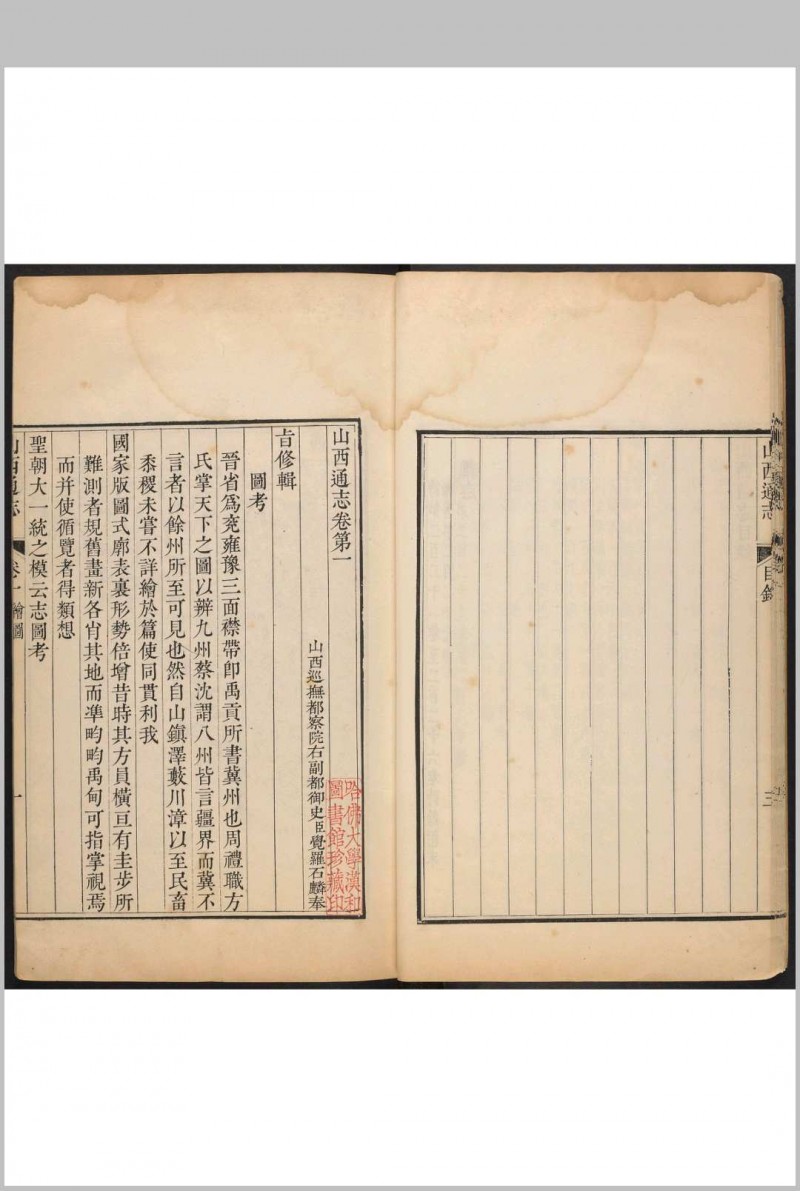 山西通志
目錄
三
山西通志卷第一
山西巡撫都察院右副都御史臣覺羅石麟奉
旨修輯
圖考
晉省爲兗雍豫三面襟帶卽禹貢所書冀州也周禮職方
氏掌天下之圖以辨九州蔡沈謂八州皆言疆界而冀不
言者以餘州所至可見也然自山鎮澤藪川漳以至民畜
黍稷未嘗不詳繪於篇使同貫利我
國家版圖式廓表裏形勢倍增昔時其方員橫亘有圭步所
難測者規舊畫新各肖其地而準畇畇禹甸可指掌視焉
而并使循覽者得類想
聖朝大一統之模云志圖考
山西通志
卷一
繪圖
一
哈佛大學漢和
圖書館珍藏印